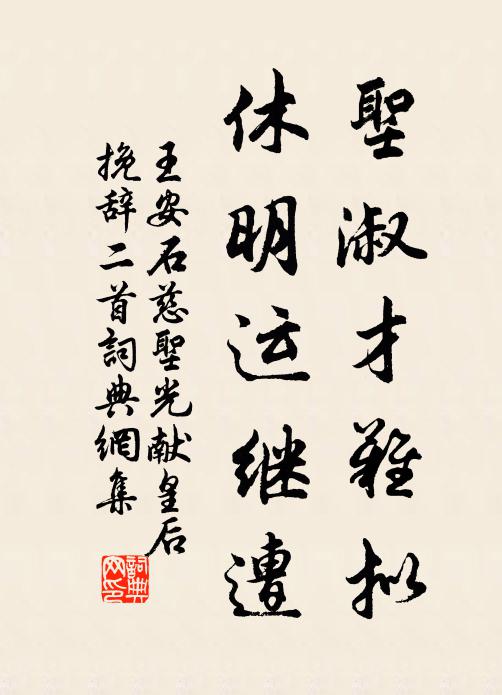 聖淑才難拟
休明运继遭
王安石慈聖光献皇后
挽辞二首詞典網集
詞典
网印